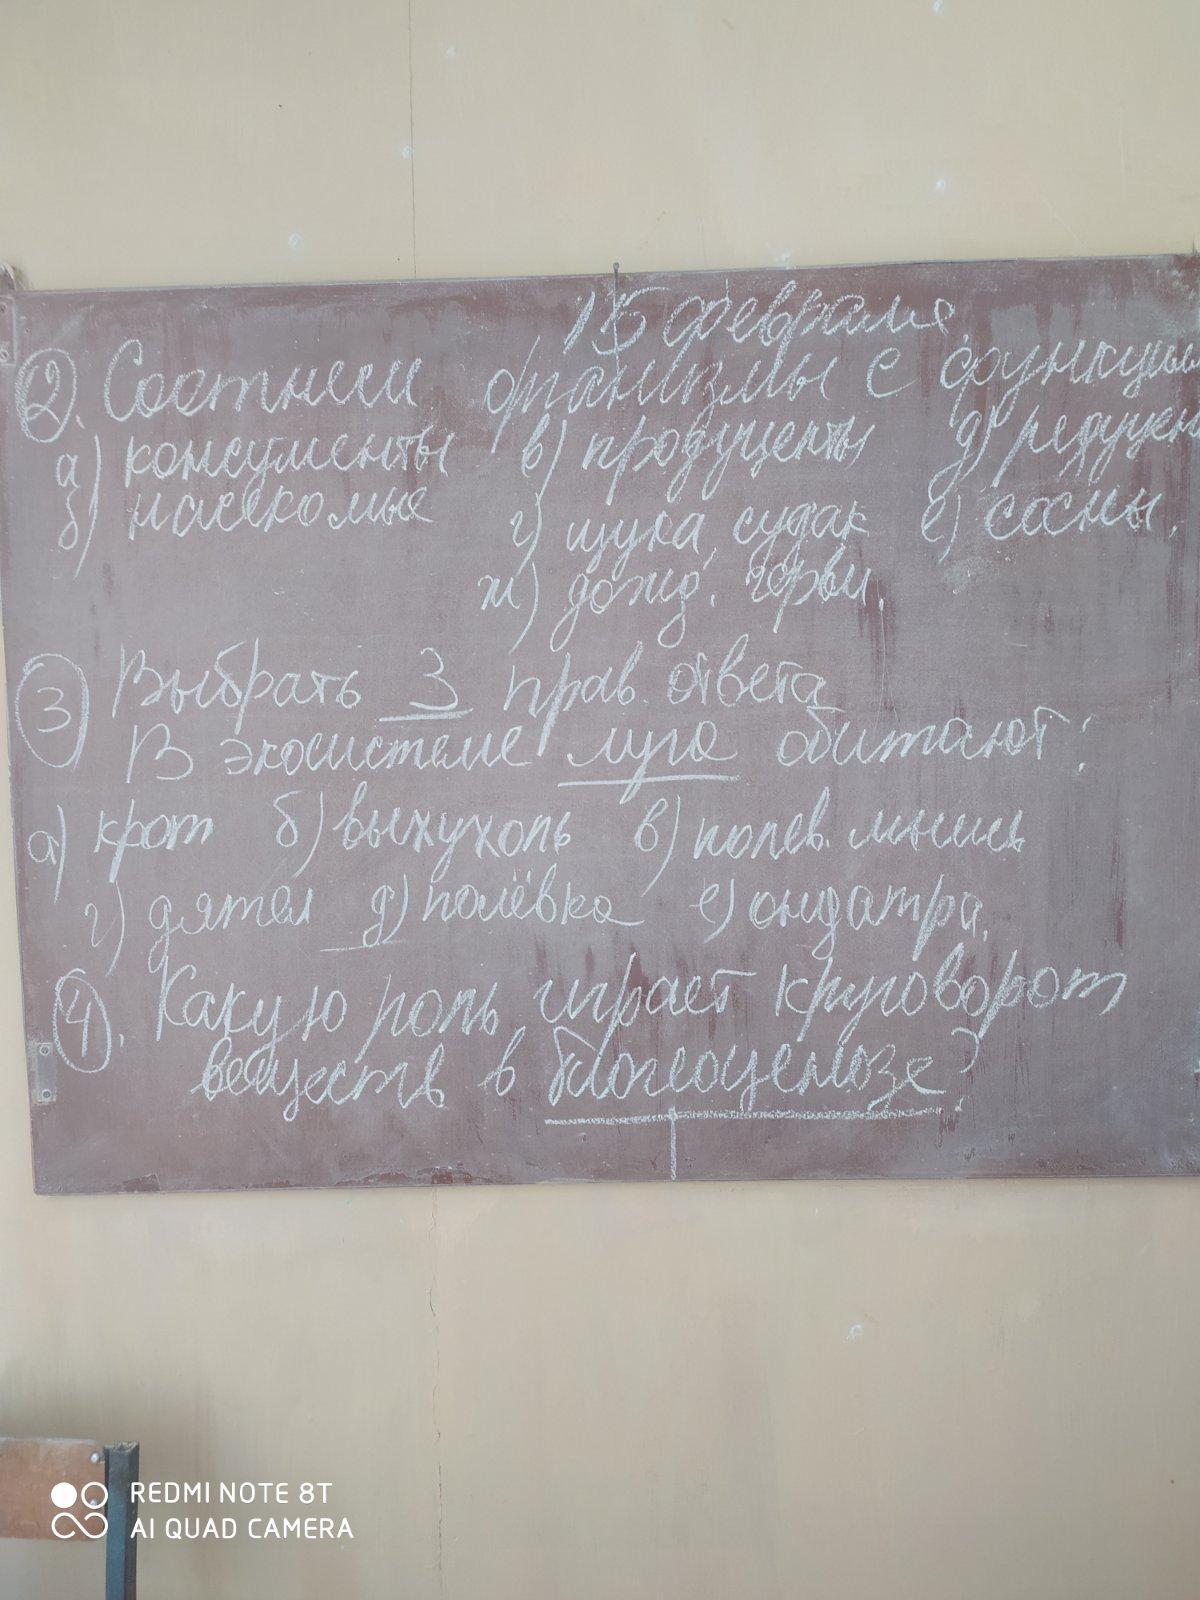 15 февраля
2. Соотнеси организмы с функциями
а) консументы в) продуценты д) редуцен
б) насекомые г) щука, судак е) сосны,
ж) дожд. черви.
3 Выбрать 3 прав. ответа
В экосистеме луга обитают:
а) крот б) выхухоль в) полев. мышь
г) дятел д) полёвка е) ондатра.
4. Какую роль играет круговорот
веществ в биогеоценозе?
REDMI NOTE 8T
AI QUAD CAMERA